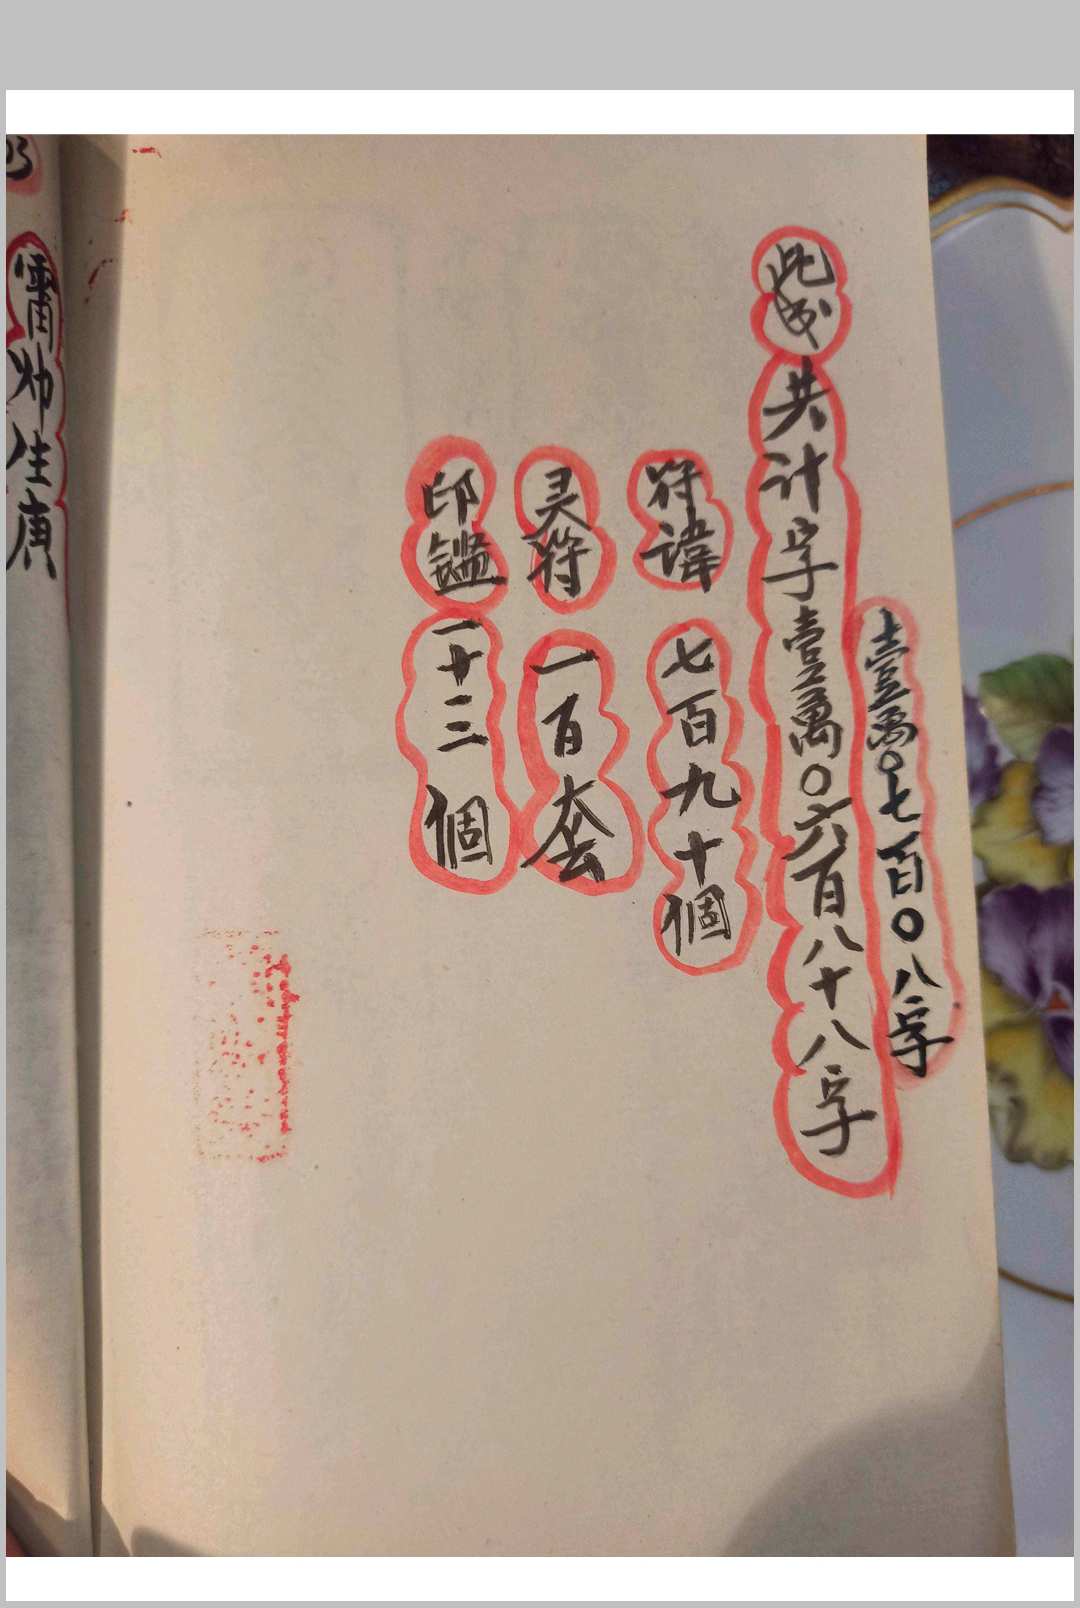 壹萬〇七百〇八字
此啟共計字壹萬〇六百八十八字
符諱 七百九十個
灵符 一百套
印鑑 一十二個
雷帅生庚